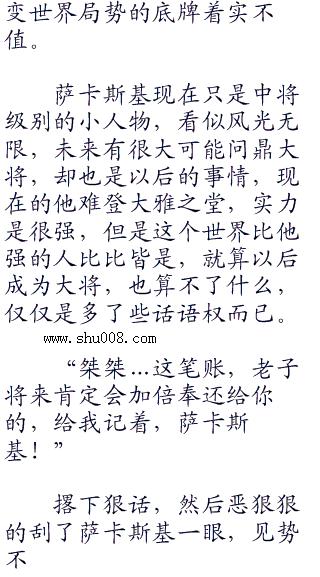 变世界局势的底牌着实不
值。
萨卡斯基现在只是中将
级别的小人物，看似风光无
限，未来有很大可能问鼎大
将，却也是以后的事情，现
在的他难登大雅之堂，实力
是很强，但是这个世界比他
强的人比比皆是，就算以后
成为大将，也算不了什么，
仅仅是多了些话语权而已。
www.shu008.com
“桀桀…这笔账，老子
将来肯定会加倍奉还给你
的，给我记着，萨卡斯
基！”
撂下狠话，然后恶狠狠
的刮了萨卡斯基一眼，见势
不